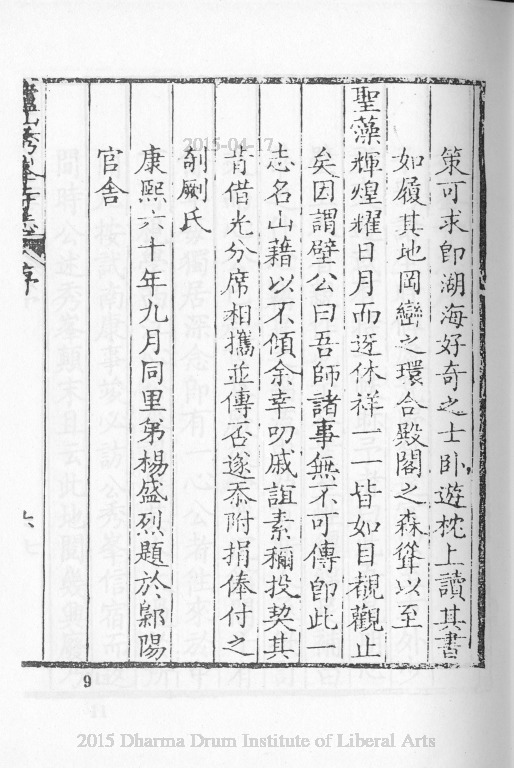 策可求即湖海好奇之士卧遊枕上讀其書
如履其地岡巒之環合殿閣之森聳以至
聖藻輝煌耀日月而迓休祥一一皆如目覩觀止
矣因謂壁公曰吾師諸事無不可傳即此一
志名山藉以不傾余幸叨戚誼素稱投契其
肯借光分席相攜並傳否遂忝附捐俸付之
剞劂氏
康熙六十年九月同里弟楊盛烈題於鄡陽
官舍
廬山秀峯寺志 序
9
2015-04-17
2015 Dharma Drum Institute of Liberal Arts